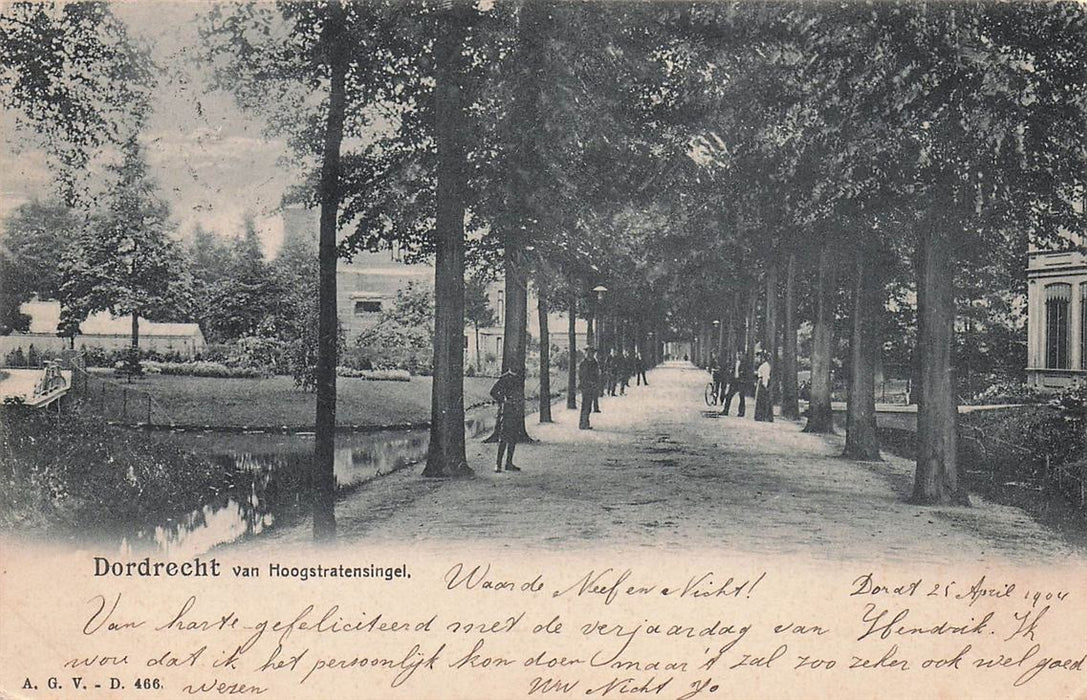 Dordrecht van Hoogstratensingel.
Waarde Neef en Nicht! Dordt 25 April 1904
Van harte gefeliciteerd met de verjaardag van Hendrik. Ik
wou dat ik het persoonlijk kon doen maar 't zal zoo zeker ook wel goed
wezen Uw Nicht Jo
A. G. V. - D. 466.